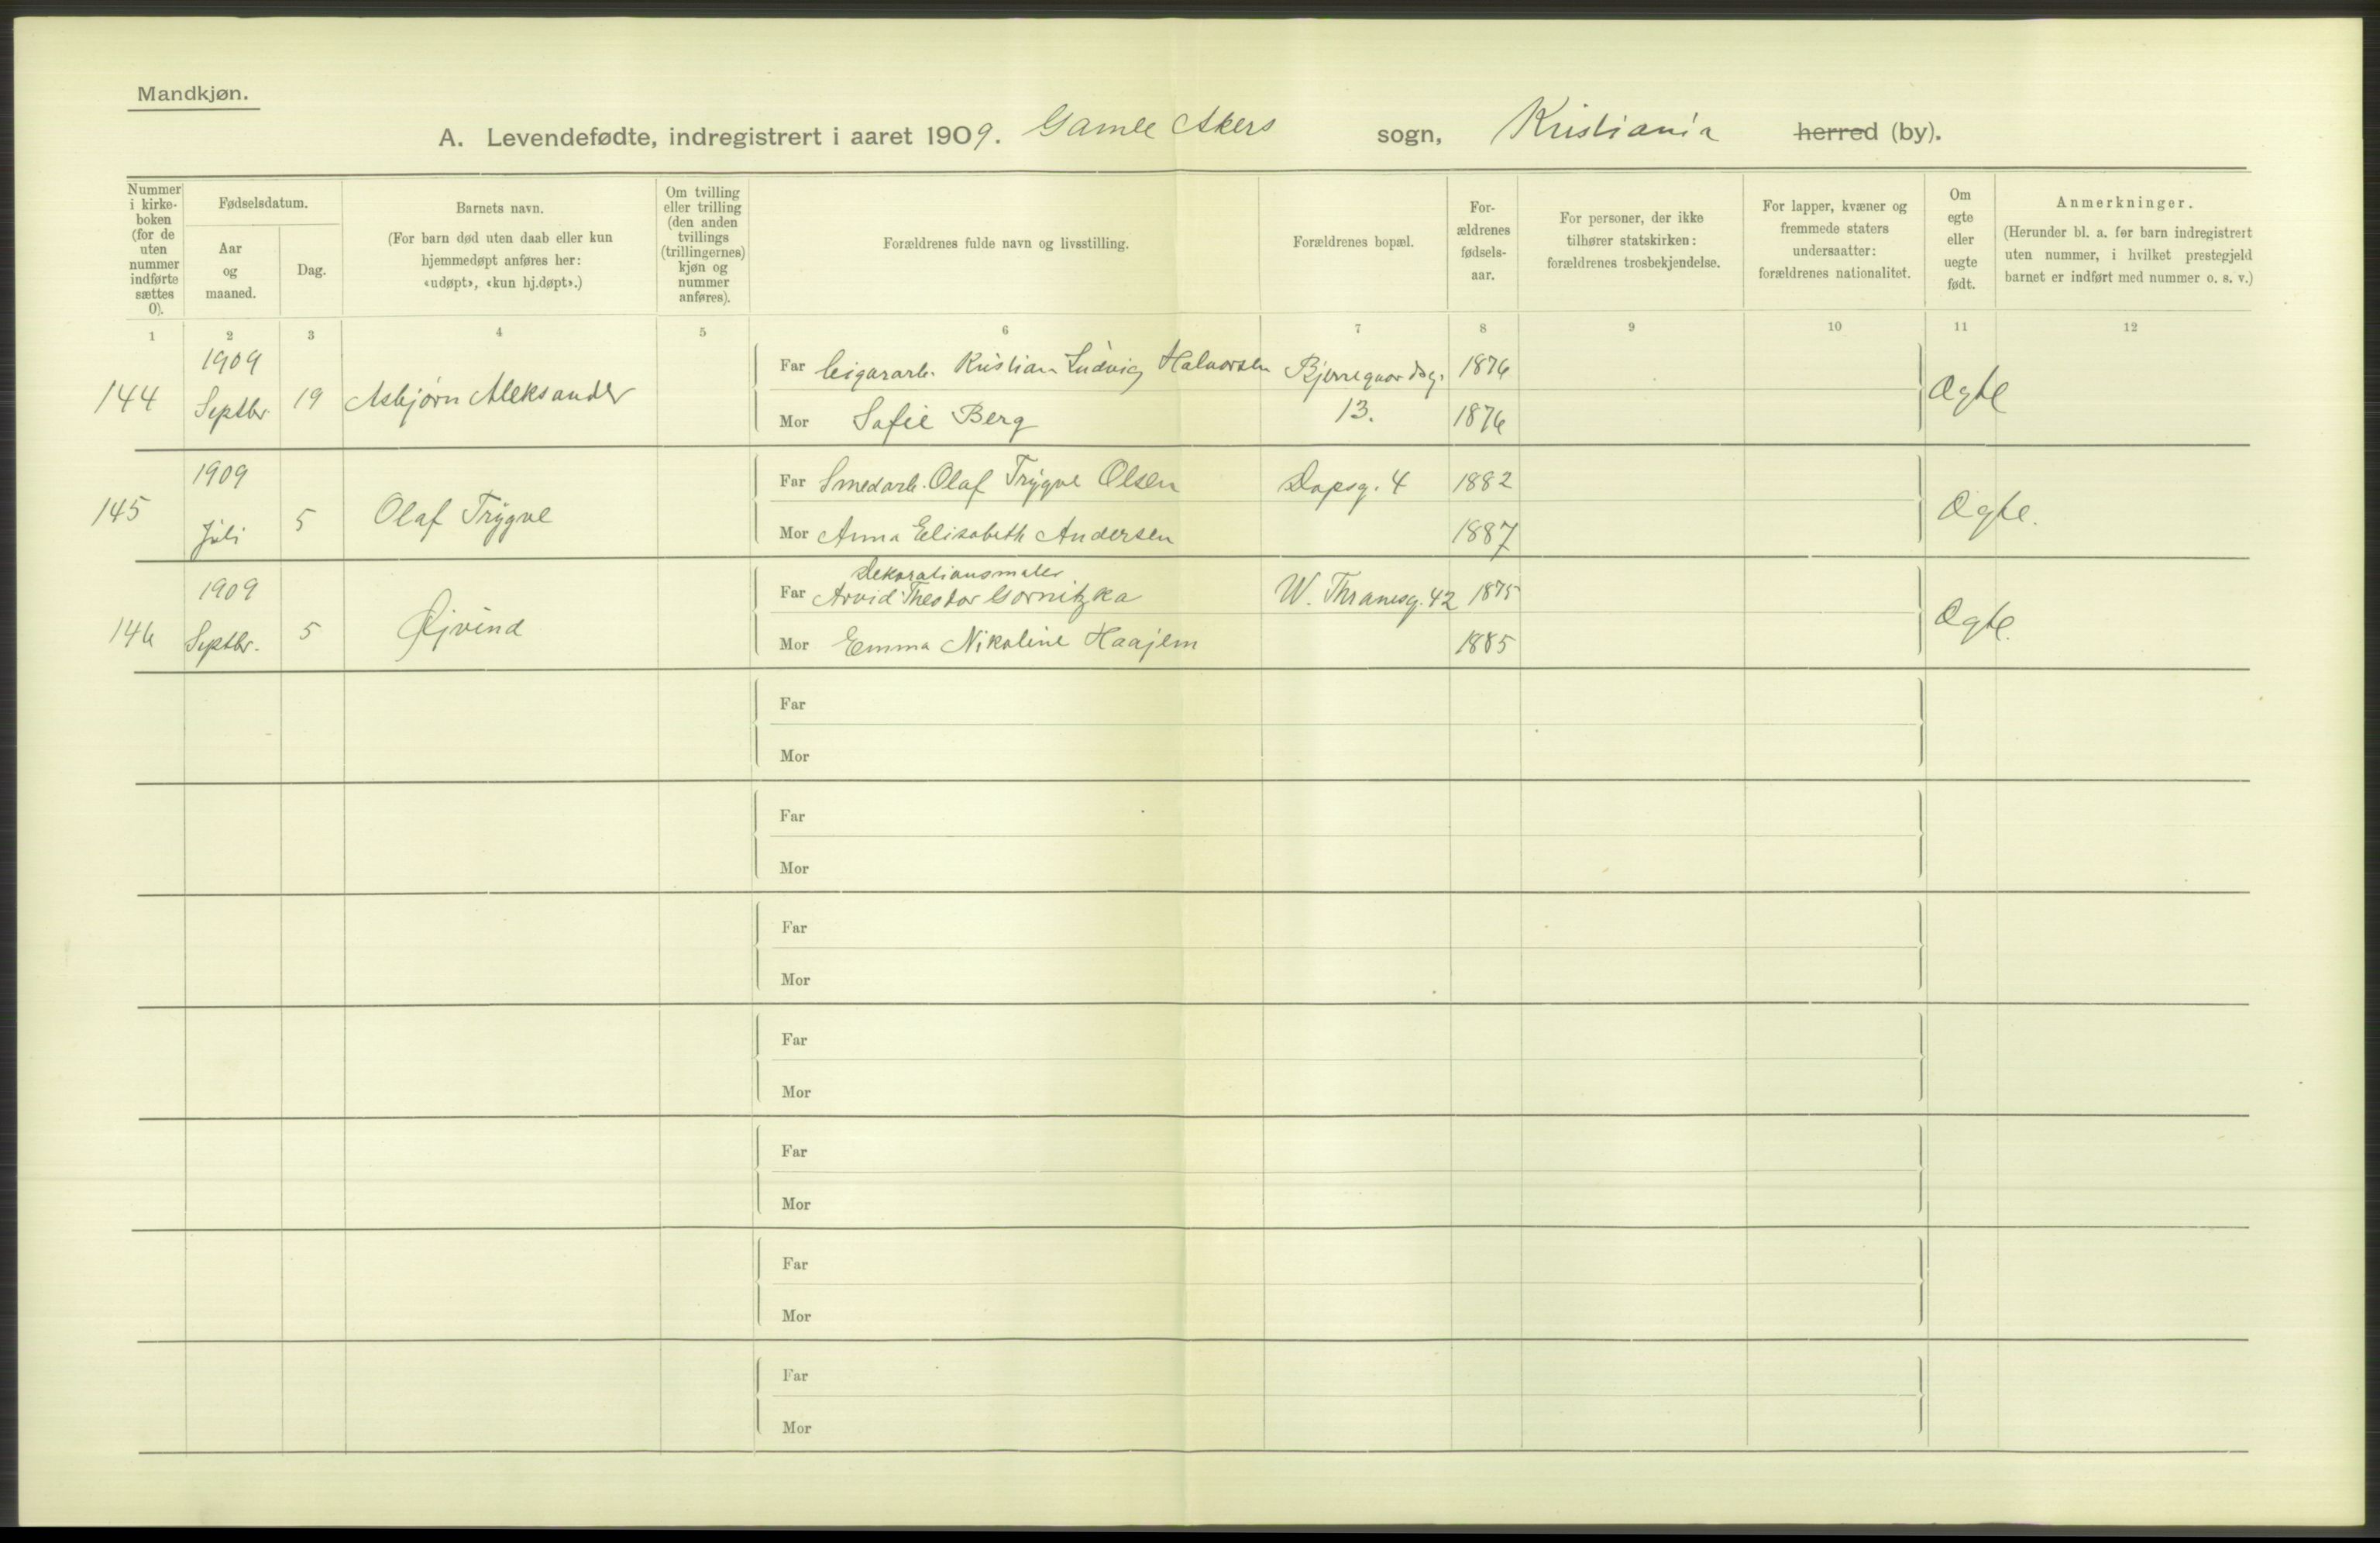 Mandkjøn.
A. Levendefødte, indregistrert i aaret 1909. Gamle Akers sogn, Kristiania herred (by).
Nummer i kirkeboken (for de uten nummer indførte sættes 0).
Fødselsdatum.
Aar og maaned.
Dag.
Barnets navn.
(For barn død uten daab eller kun hjemmedøpt anføres her: «udøpt», «kun hj.døpt».)
Om tvilling eller trilling (den anden tvillings (trillingernes) kjøn og nummer anføres).
Forældrenes fulde navn og livsstilling.
Forældrenes bopæl.
Forældrenes fødselsaar.
For personer, der ikke tilhører statskirken: forældrenes trosbekjendelse.
For lapper, kvæner og fremmede staters undersaatter: forældrenes nationalitet.
Om egte eller uegte født.
Anmerkninger.
(Herunder bl. a. for barn indregistrert uten nummer, i hvilket prestegjeld barnet er indført med nummer o. s. v.)
1 2 3 4 5 6 7 8 9 10 11 12
144 1909 Septbr. 19 Asbjørn Aleksander
Far Cigararb. Kristian Ludvig Halvorsen Bjerregaardsg. 1876
Mor Sofie Berg 13. 1876
Ægte
145 1909 Juli 5 Olaf Trygve
Far Smedarb. Olaf Trygve Olsen Dopsg. 4 1882
Mor Anna Elisabeth Andersen 1887
Ægte.
146 1909 Septbr. 5 Øjvind
Dekorationsmaler
Far Arvid Theodor Gornitzka W. Thranesg. 42 1875
Mor Emma Nikoline Haajem 1885
Ægte.
Far
Mor
Far
Mor
Far
Mor
Far
Mor
Far
Mor
Far
Mor
Far
Mor